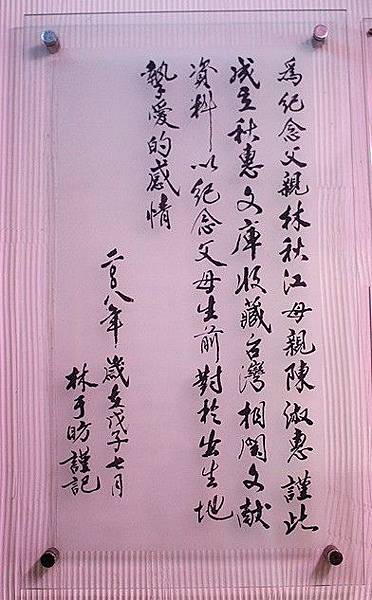 為紀念父親林秋江母親陳淑惠謹此
成立秋惠文庫收藏台灣相関文献
資料以紀念父母生前對於出生地
摯愛的感情
二〇〇八年歲在戊子七月
林于昉謹記